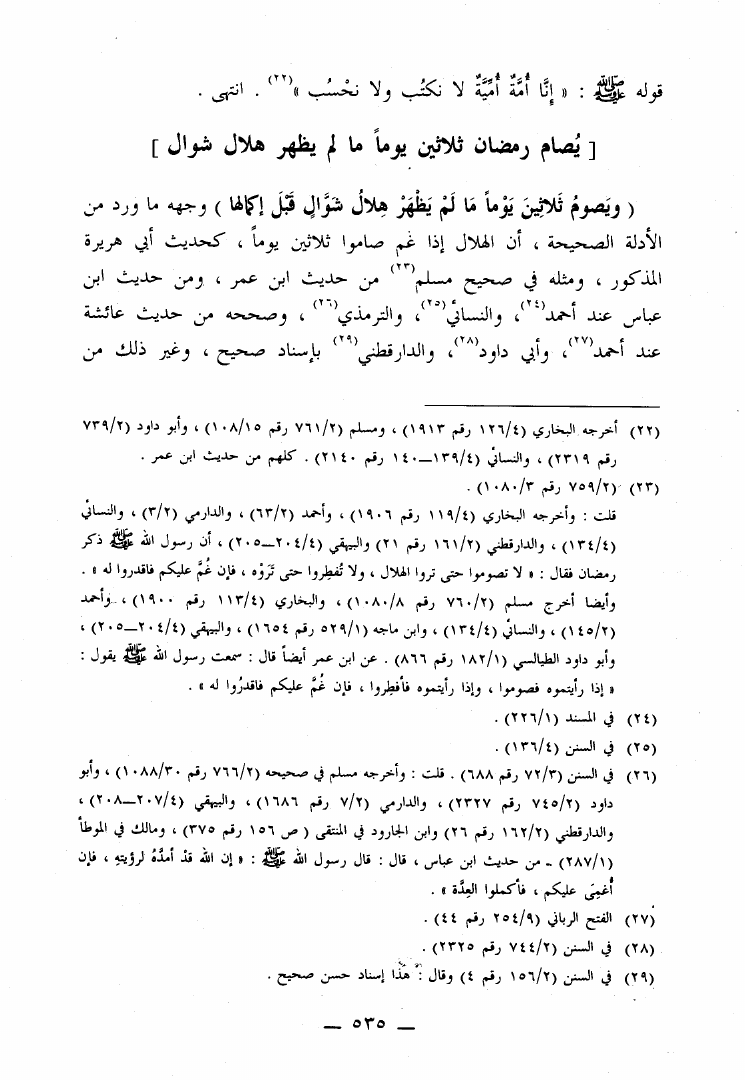 قوله ﷺ : « إِنَّا أُمَّةٌ أُمِّيَّةٌ لا نكتُب ولا نحْسُب »(٢٢) . انتهى .
[ يُصام رمضان ثلاثين يوماً ما لم يظهر هلال شوال ]
( ويَصومُ ثَلاثِينَ يَوْماً مَا لَمْ يَظْهَرْ هِلالُ شَوَّالٍ قَبْلَ إكمالِها ) وجهه ما ورد من
الأدلة الصحيحة ، أن الهلال إذا غم صاموا ثلاثين يوماً ، كحديث أبي هريرة
المذكور ، ومثله في صحيح مسلم(٢٣) من حديث ابن عمر ، ومن حديث ابن
عباس عند أحمد(٢٤)، والنسائي(٢٥)، والترمذي(٢٦) ، وصححه من حديث عائشة
عند أحمد(٢٧)، وأبي داود(٢٨)، والدارقطني(٢٩) بإسناد صحيح ، وغير ذلك من
(٢٢) أخرجه البخاري (١٢٦/٤ رقم ١٩١٣) ، ومسلم (٧٦١/٢ رقم ١٠٨/١٥) ، وأبو داود (٧٣٩/٢
رقم ٢٣١٩) ، والنسائي (١٣٩/٤–١٤٠ رقم ٢١٤٠) . كلهم من حديث ابن عمر .
(٢٣) (٧٥٩/٢ رقم ١٠٨٠/٣) .
قلت : وأخرجه البخاري (١١٩/٤ رقم ١٩٠٦) ، وأحمد (٦٣/٢) ، والدارمي (٣/٢) ، والنسائي
(١٣٤/٤) ، والدارقطني (١٦١/٢ رقم ٢١) والبيهقي (٢٠٤/٤–٢٠٥) ، أن رسول الله ﷺ ذكر
رمضان فقال : « لا تصوموا حتى تروا الهلال ، ولا تُفطِروا حتى تَرَوْه ، فإن غُمَّ عليكم فاقدروا له » .
وأيضا أخرج مسلم (٧٦٠/٢ رقم ١٠٨٠/٨) ، والبخاري (١١٣/٤ رقم ١٩٠٠) ، وأحمد
(١٤٥/٢) ، والنسائي (١٣٤/٤) ، وابن ماجه (٥٢٩/١ رقم ١٦٥٤) ، والبيهقي (٢٠٤/٤–٢٠٥) ،
وأبو داود الطيالسي (١٨٢/١ رقم ٨٦٦) . عن ابن عمر أيضاً قال : سمعت رسول الله ﷺ يقول :
« إذا رأيتموه فصوموا ، وإذا رأيتموه فأفطِروا ، فإن غُمَّ عليكم فاقدُروا له » .
(٢٤) في المسند (٢٢٦/١) .
(٢٥) في السنن (١٣٦/٤) .
(٢٦) في السنن (٧٢/٣ رقم ٦٨٨) . قلت : وأخرجه مسلم في صحيحه (٧٦٦/٢ رقم ١٠٨٨/٣٠) ، وأبو
داود (٧٤٥/٢ رقم ٢٣٢٧) ، والدارمي (٧/٢ رقم ١٦٨٦) ، والبيهقي (٢٠٧/٤–٢٠٨) ،
والدارقطني (١٦٢/٢ رقم ٢٦) وابن الجارود في المنتقى ( ص ١٥٦ رقم ٣٧٥) ، ومالك في الموطأ
(٢٨٧/١) - من حديث ابن عباس ، قال : قال رسول الله ﷺ : « إن الله قدْ أمدَّهُ لرؤيتهِ ، فإن
أُغمِى عليكم ، فأكملوا العِدَّة » .
(٢٧) الفتح الرباني (٢٥٤/٩ رقم ٤٤) .
(٢٨) في السنن (٧٤٤/٢ رقم ٢٣٢٥) .
(٢٩) في السنن (١٥٦/٢ رقم ٤) وقال : هذا إسناد حسن صحيح .
– ٥٣٥ –